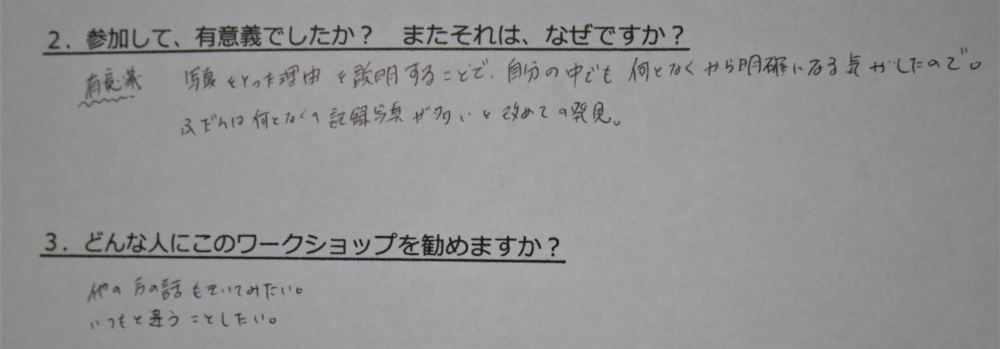 2．参加して、有意義でしたか？　またそれは、なぜですか？
有意義　写真をとった理由を説明することで、自分の中でも何となくから明確になる気がしたので。
ふだんは何となくの記録写真が多いと改めての発見。
3．どんな人にこのワークショップを勧めますか？
他の方の話もきいてみたい。
いつもと違うことしたい。